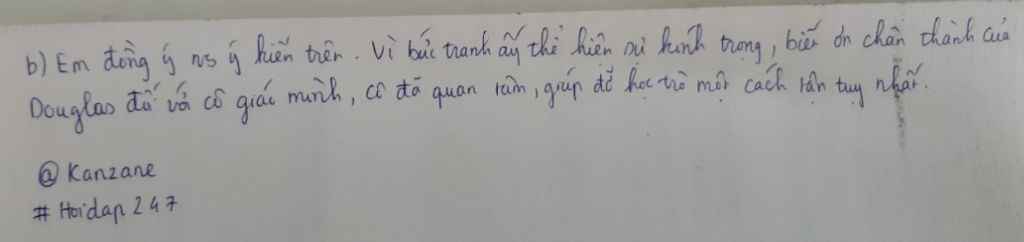 b) Em đồng ý vs ý kiến trên. Vì bức tranh ấy thể hiện sự kính trọng, biết ơn chân thành của
Douglas đối với cô giáo mình, cô đã quan tâm, giúp đỡ học trò một cách tận tuy nhất.
@ Kanzane
# Hoidap 247